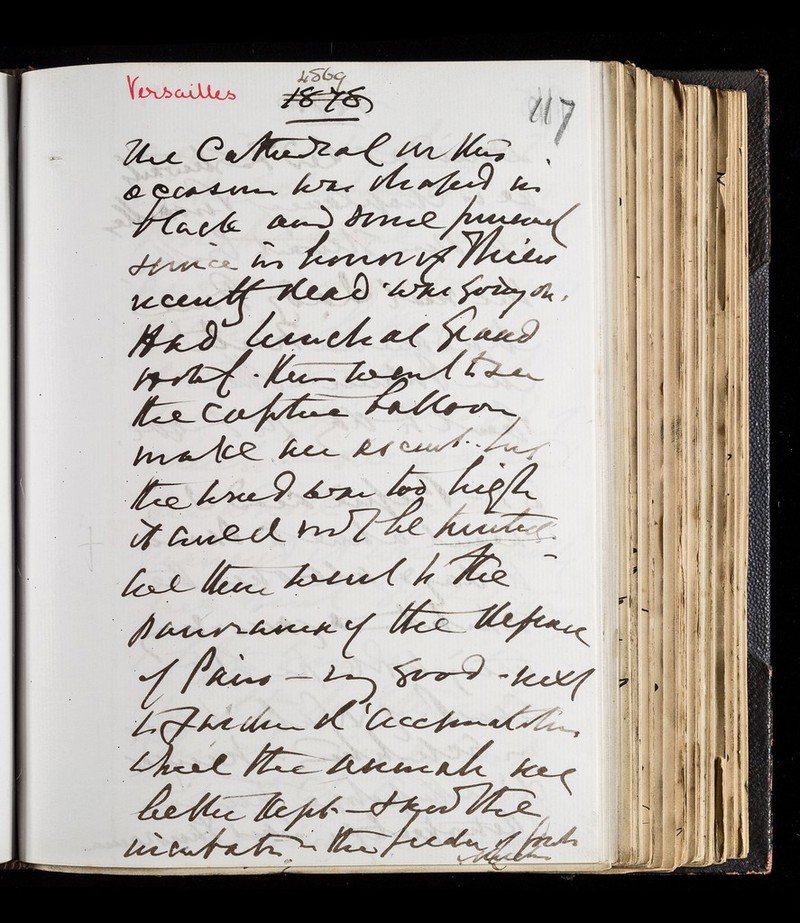 Versailles
1869
1878
117
The Cathedral on this
occasion was draped in
black and some funeral
service in honor of Thiers
recently dead was going on.
Had lunch at Grand
Hotel. Then went to see
the captive balloon
make an ascent. but
the wind was too high
it could not be
we then went to the
panorama of the defence
of Paris — very good - next
to Jardin d'acclimatation
where the animals are
better kept — saw the
incubator in the